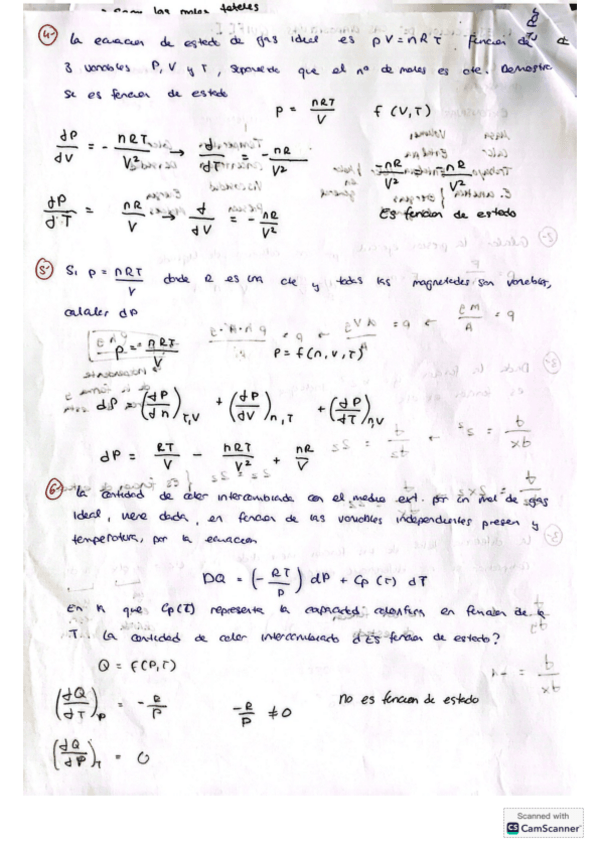 los moles totales
4- La ecuacion de estado de gas ideal es pV = nRT. Funcion de
3 variables P, V y T, suponiendo que el nº de moles es cte. Demostrar
si es funcion de estado
P = nRT/V f(V,T)
dP/dV = - nRT/V² → d/dT = -nR/V² -nR/V² = -nR/V²
dP/dT = nR/V → d/dV = -nR/V² Es funcion de estado
5- Si p = nRT/V donde R es una cte y todas las magnitudes son variables,
calcular dP
P = nRT/V P = f(n,v,T)
dP = (dP/dn)T,V + (dP/dV)n,T + (dP/dT)n,V
dP = RT/V - nRT/V² + nR/V
6- La cantidad de calor intercambiada con el medio ext. por un mol de gas
ideal, viene dada, en funcion de las variables independientes presion y
temperatura, por la ecuacion
DQ = (- RT/P) dP + Cp (T) dT
En la que Cp(T) representa la capacidad calorifica en funcion de la
T. La cantidad de calor intercambiado ¿Es funcion de estado?
Q = f(P,T)
(dQ/dT)P = -R/P -R/P ≠ 0 No es funcion de estado
(dQ/dP)T = 0
Scanned with
CS CamScanner